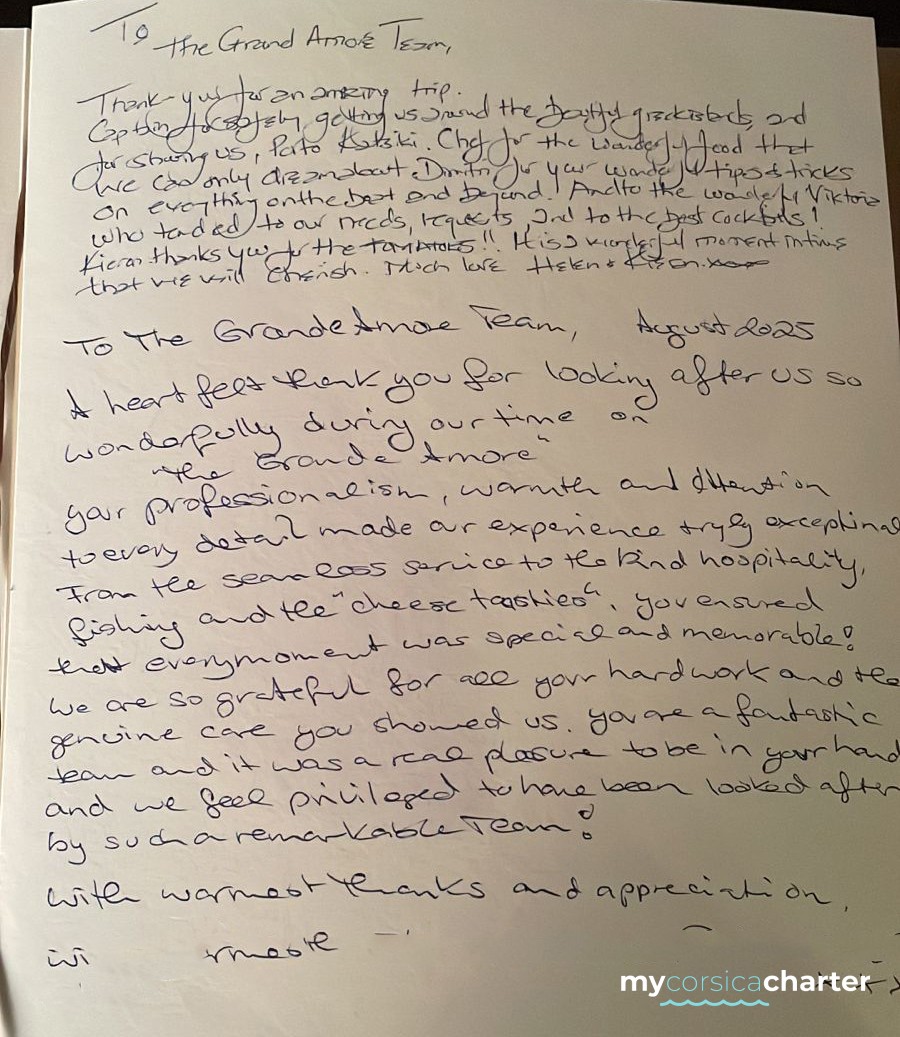 To
the Grand Amore Team,
Thank-you for an amazing trip.
Captain for safely getting us around the beautiful greek islands, and
for sharing us, Porto Katsiki. Chef for the wonderful food that
we can only dream about. Dimitri for your wonderful tips & tricks
on everything on the boat and beyond! And to the wonderful Viktoria
who tended to our needs, requests, and to the best cocktails!
Kieran thanks you for the tomatoes!! It is a wonderful moment in time
that we will cherish. Much love Helen &
To The Grande Amore Team, August 2025
A heart felt thank you for looking after us so
wonderfully during our time on
"the Grande Amore"
your professionalism, warmth and attention
to every detail made our experience tryly exceptional
From the seamless service to the kind hospitality,
fishing and the "cheese toasties". you ensured
that every moment was special and memorable!
we are so grateful for all your hard work and the
genuine care you showed us. you are a fantastic
team and it was a real plasure to be in your hand
and we feel privileged to have been looked after
by such a remarkable Team!
with warmest thanks and appreciation,
mycorsicacharter